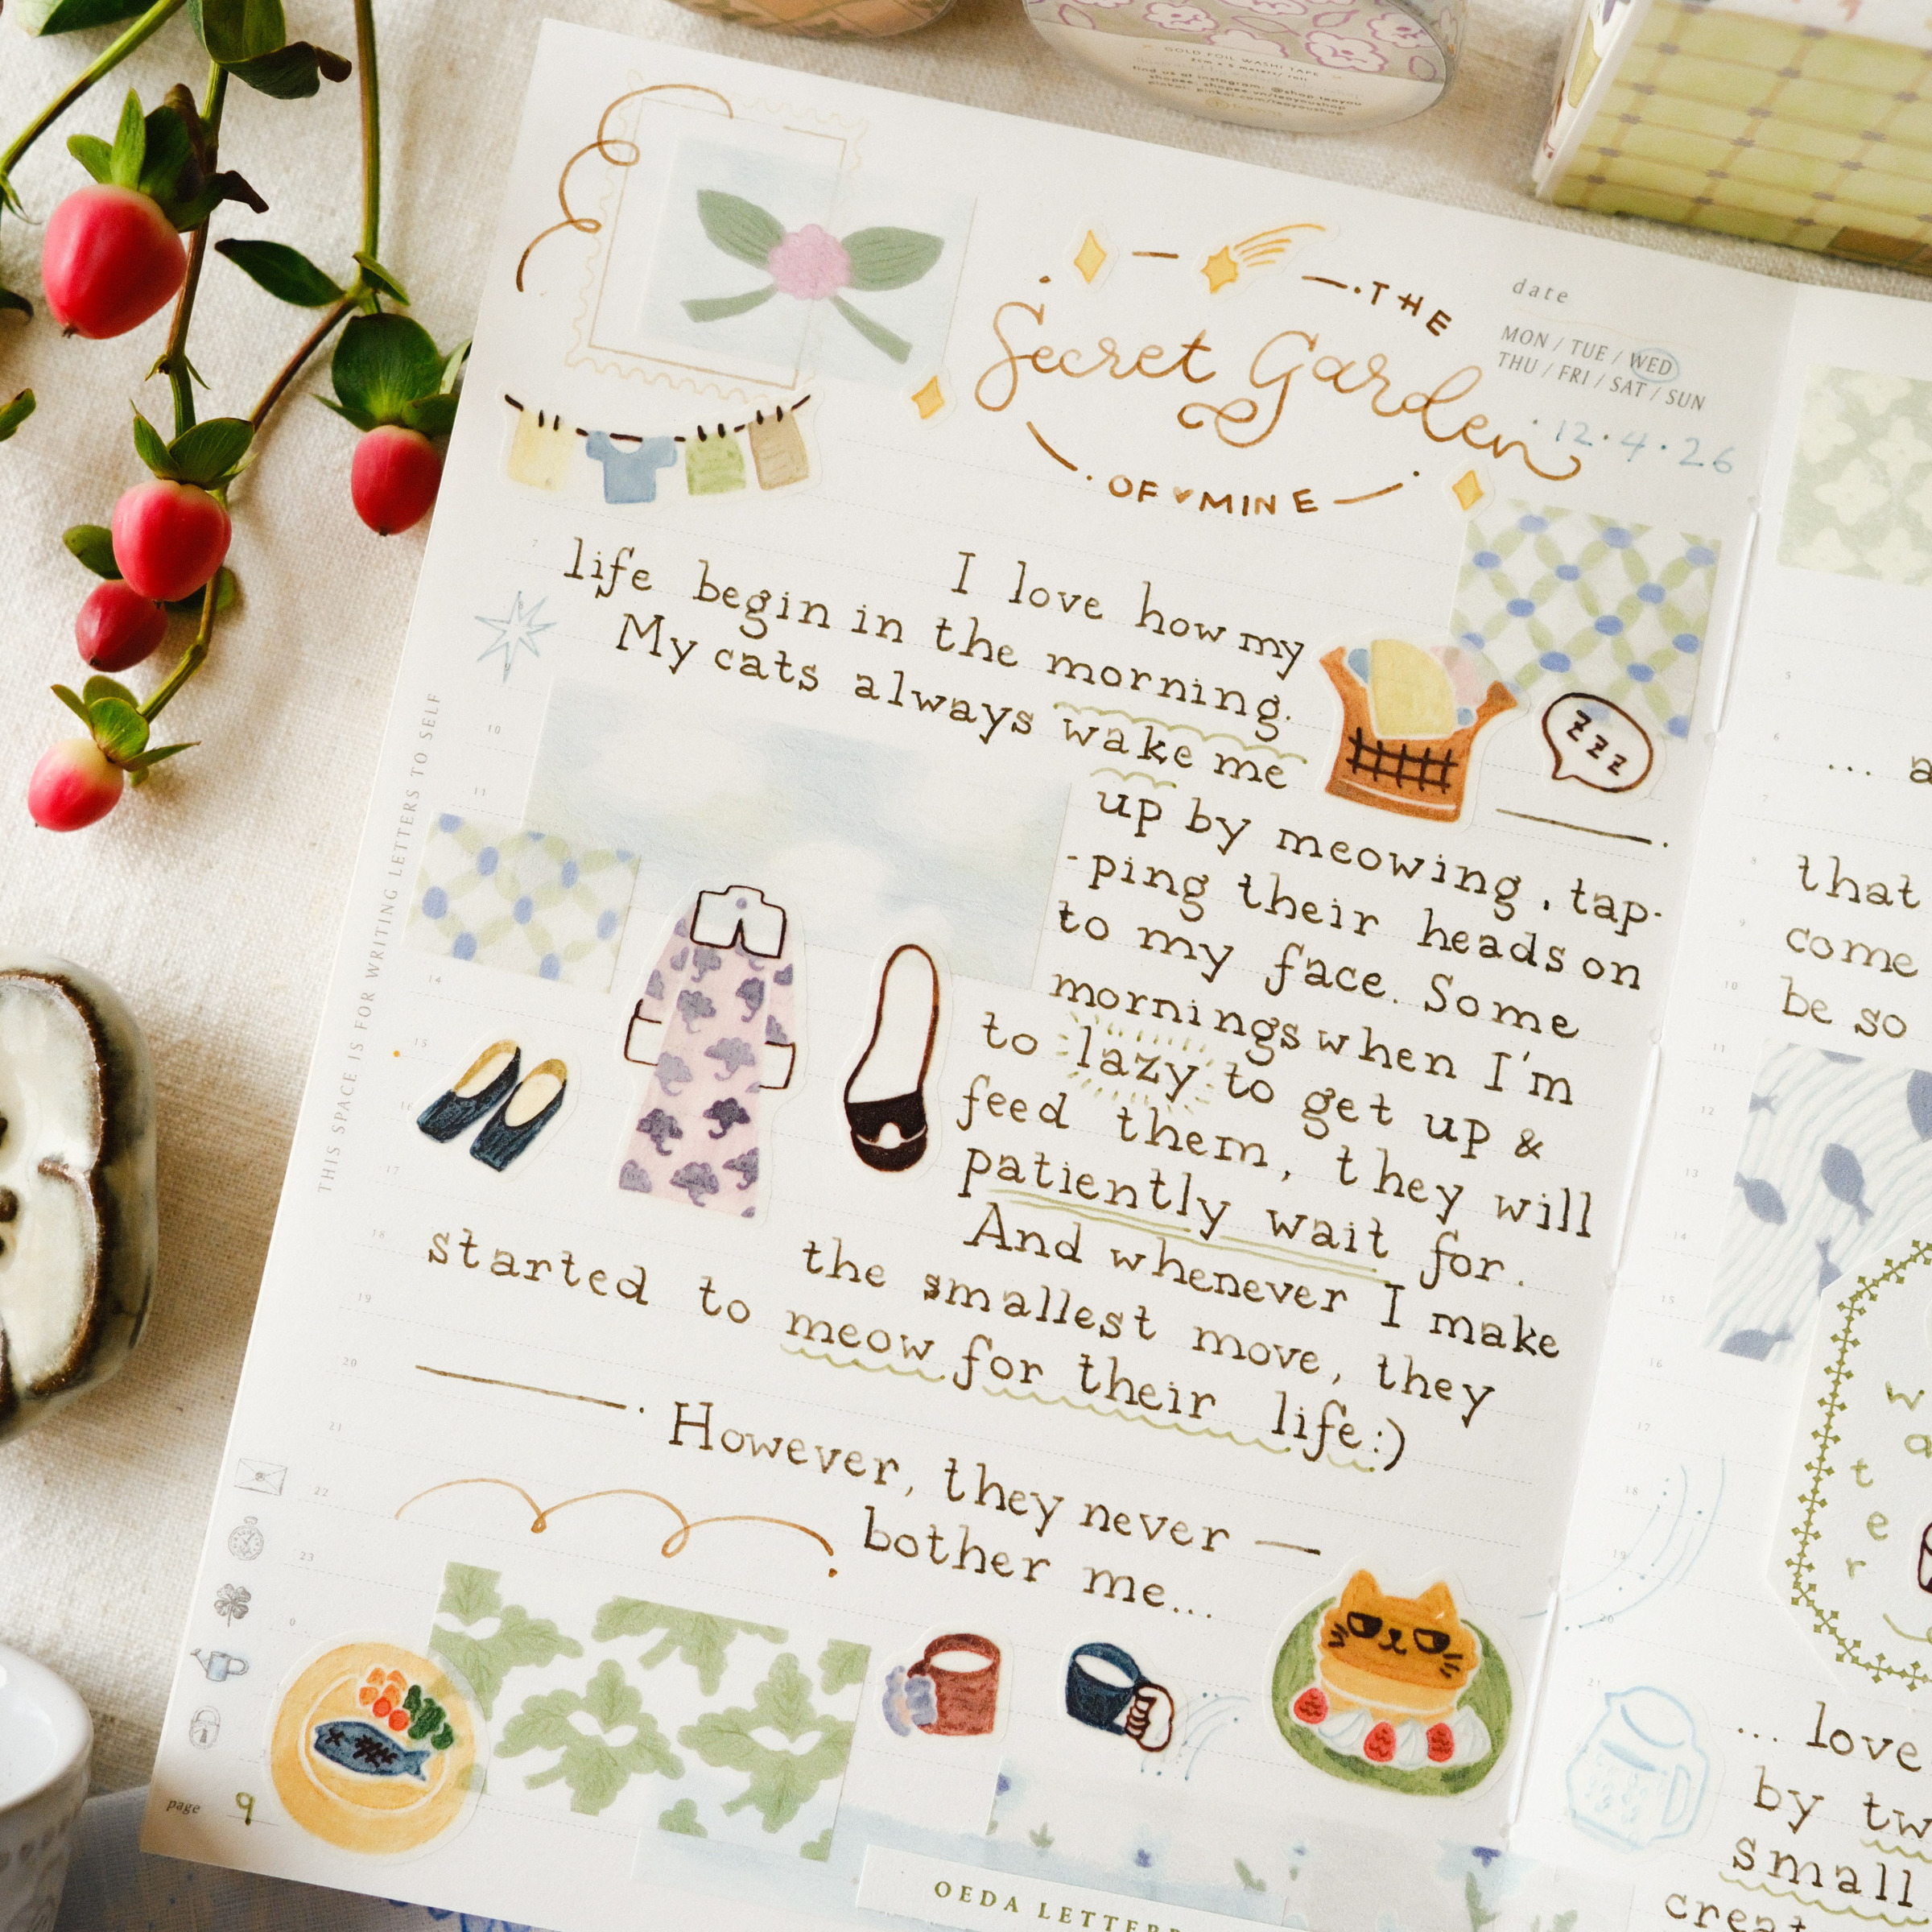 GOLD FOIL WASHI TAPE
find us at instagram: @shop.tenyou
shopee: shopee.vn/tenyoushop
pinkoi: pinkoi.com/tenyoushop
THE
Secret Garden
OF MINE
date
MON / TUE / WED
THU / FRI / SAT / SUN
12.4.26
I love how my
life begin in the morning.
My cats always wake me
zzz
up by meowing, tap-
-ping their heads on
to my face. Some
mornings when I'm
to lazy to get up &
feed them, they will
patiently wait for.
And whenever I make
the smallest move, they
started to meow for their life :)
However, they never —
bother me...
THIS SPACE IS FOR WRITING LETTERS TO SELF
7
9
10
11
14
15
16
17
18
19
20
21
22
23
0
page 9
OEDA
5
6
7
8
9
10
11
12
13
14
15
16
17
18
19
20
21
...
that
come
be so
water
... love
by
small